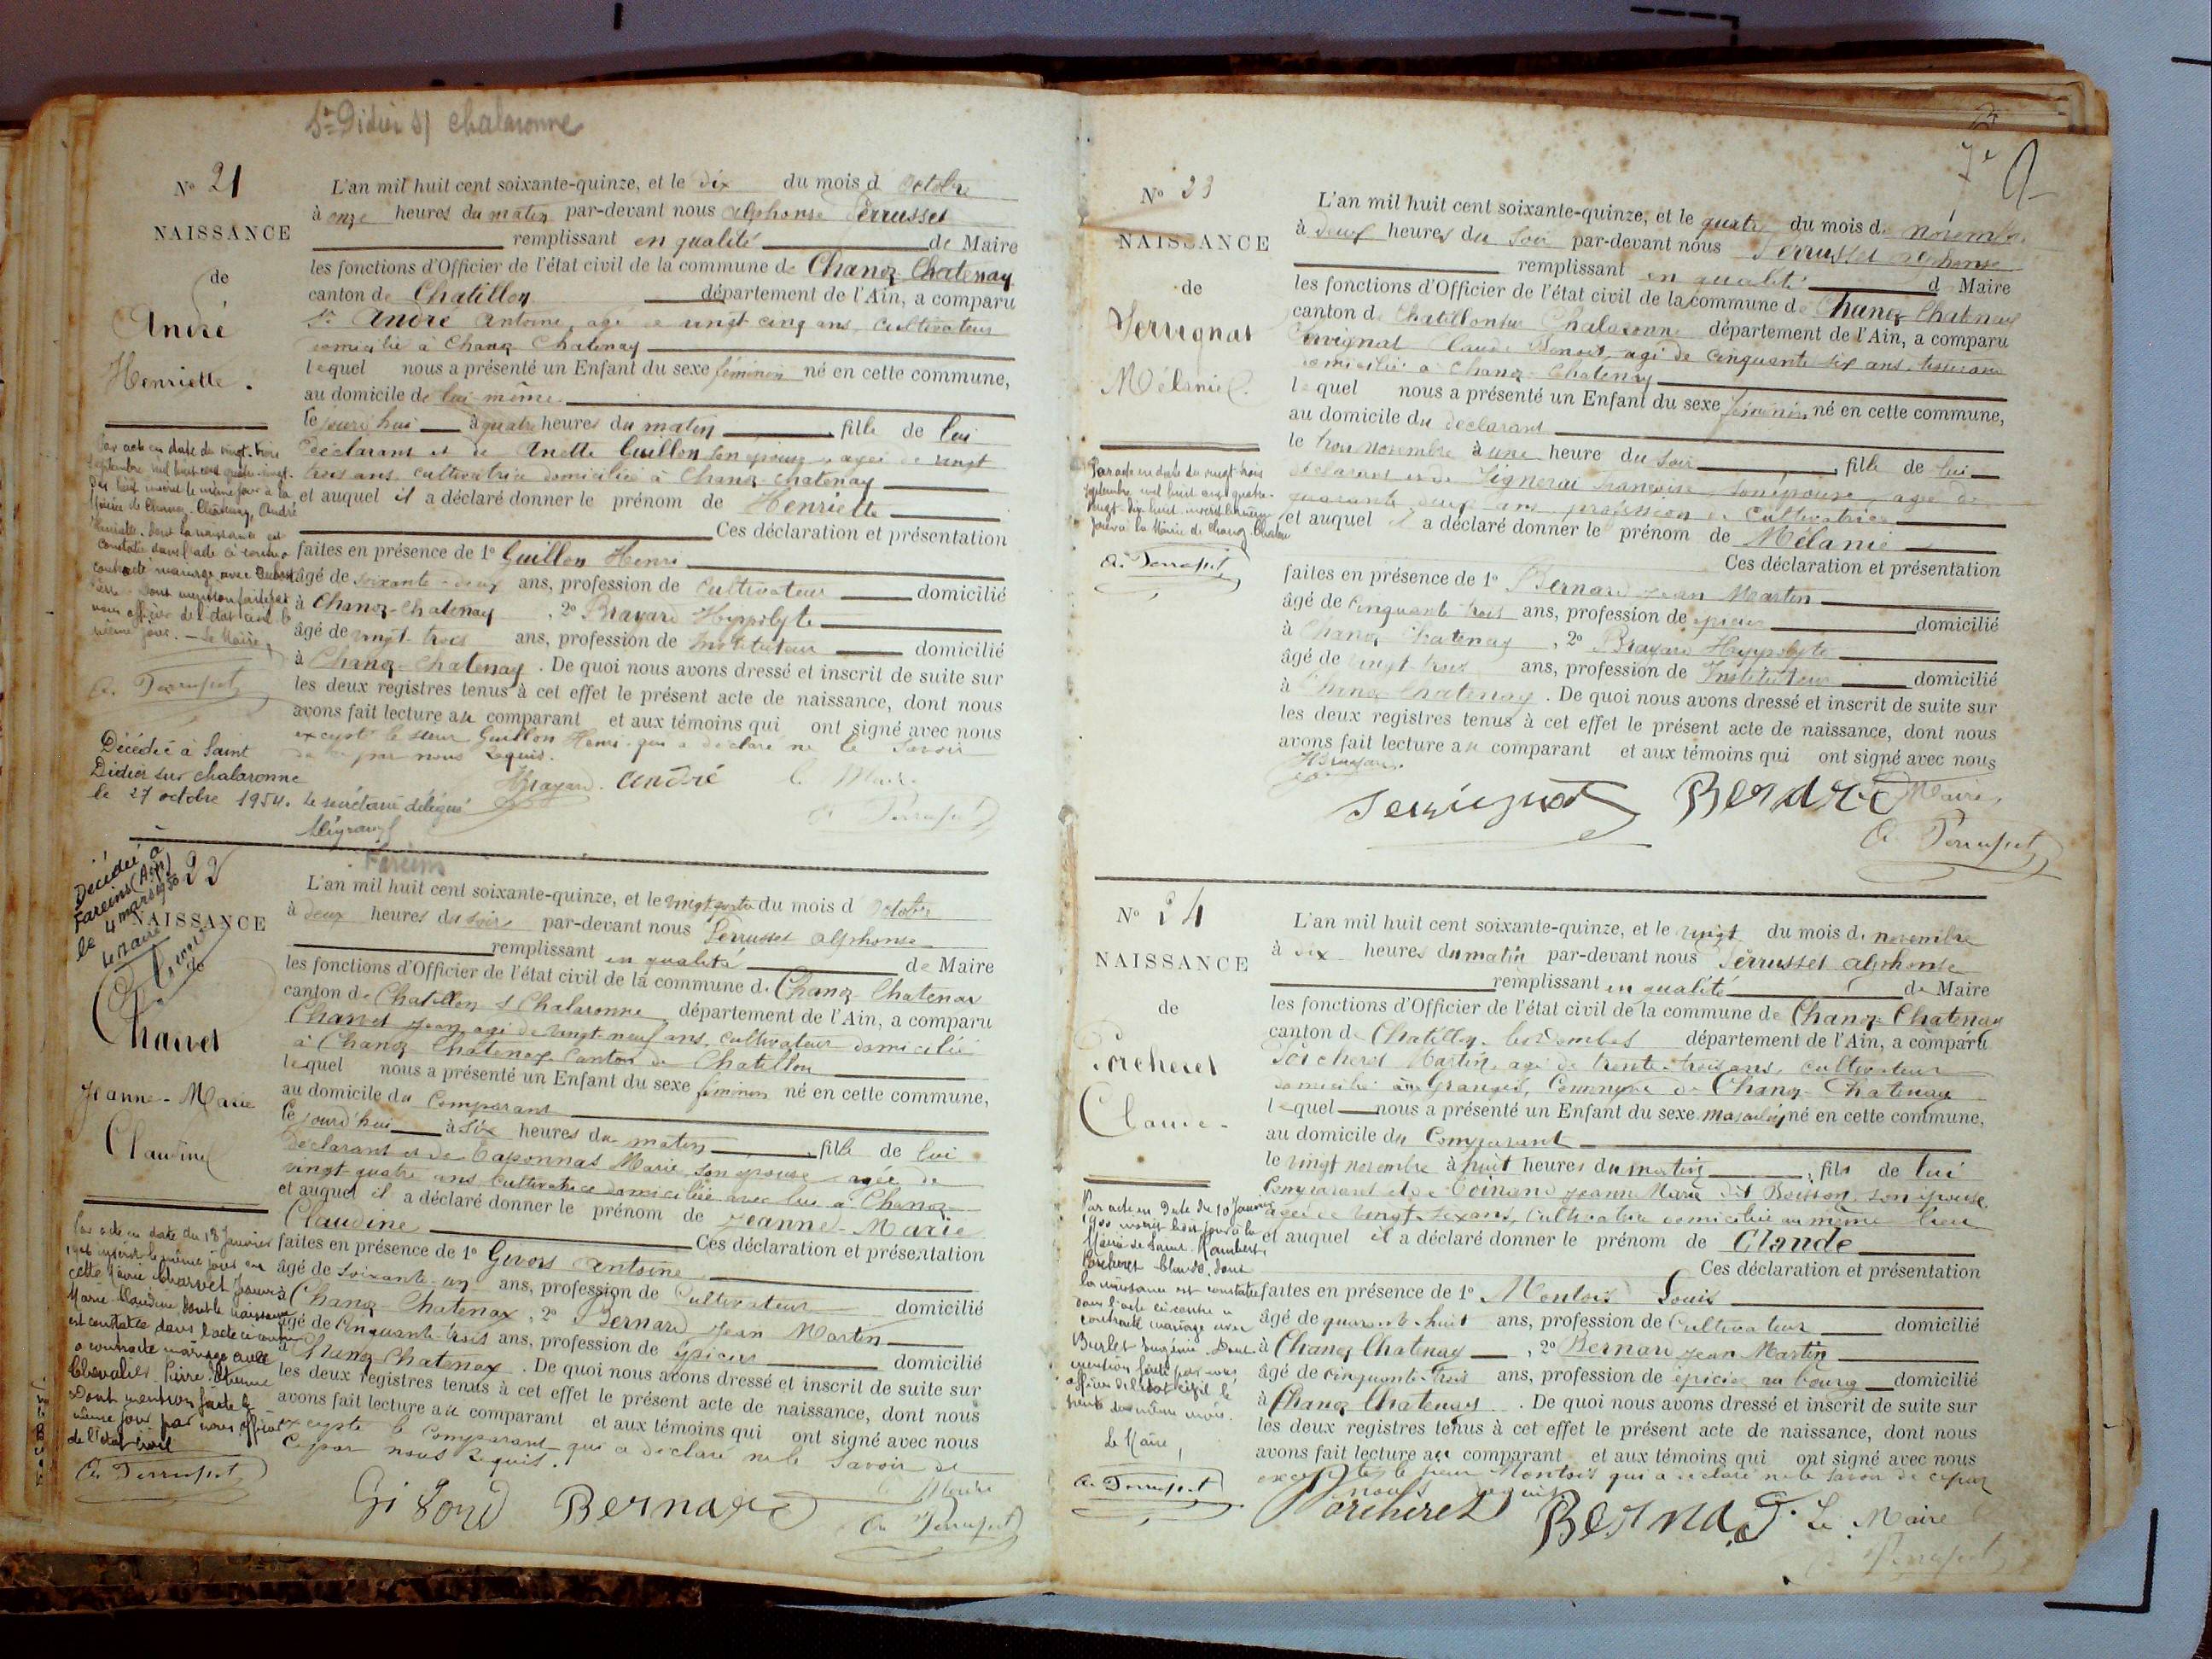 St Didier s/ chalaronne
N° 21
NAISSANCE
de
André
Henriette.
L'an mil huit cent soixante-quinze, et le dix du mois d octobre
à onze heures du matin par-devant nous alphonse Perrusset
remplissant en qualité de Maire
les fonctions d'Officier de l'état civil de la commune de Chanoz-Chatenay
canton de Chatillon département de l'Ain, a comparu
Sr André Antoine, agé de vingt cinq ans, cultivateur
domicilié à Chanoz Chatenay
lequel nous a présenté un Enfant du sexe féminin né en cette commune,
au domicile de lui-même
le jourd'hui à quatre heures du matin, fille de lui
déclarant et de Anette Guillon son épouse, agée de vingt
trois ans, cultivatrice domiciliée à Chanoz-chatenay
et auquel il a déclaré donner le prénom de Henriette
Ces déclaration et présentation
faites en présence de 1° Guillon Henri
âgé de soixante-deux ans, profession de Cultivateur domicilié
à Chanoz-Chatenay, 2° Brayard Hyppolyte
âgé de vingt-trois ans, profession de Instituteur domicilié
à Chanoz-Chatenay. De quoi nous avons dressé et inscrit de suite sur
les deux registres tenus à cet effet le présent acte de naissance, dont nous
avons fait lecture au comparant et aux témoins qui ont signé avec nous
excepté le sieur Guillon Henri qui a déclaré ne le savoir
de ce par nous requis.
HBrayard. André le Maire
A. Perrusset
Par acte en date du vingt-trois
septembre mil huit cent quatre-vingt-
dix huit inscrit le même jour à la
Mairie de Chanoz-Châtenay, André
Henriette dont la naissance est
constatée dans l'acte ci-contre a
contracté mariage avec
dont mention faite par
nous officier de l'état civil le
même jour. — Le Maire,
A. Perrusset
Décédée à Saint
Didier sur chalaronne
le 27 octobre 1954. Le secrétaire délégué
Fareins
Décédée à
Fareins (Ain)
le 4 mars 1950
Le Maire
22
NAISSANCE
de
Charvet
Jeanne-Marie
Claudine
L'an mil huit cent soixante-quinze, et le vingt quatre du mois d octobre
à deux heures du soir par-devant nous Perrusset alphonse
remplissant en qualité de Maire
les fonctions d'Officier de l'état civil de la commune de Chanoz-Chatenay
canton de Chatillon s Chalaronne, département de l'Ain, a comparu
Charvet Jean, agé de vingt neuf ans, cultivateur domicilié
à Chanoz Chatenay Canton de Chatillon
lequel nous a présenté un Enfant du sexe féminin né en cette commune,
au domicile du Comparant
le jourd'hui à six heures du matin, fille de lui
déclarant et de Caponnas Marie son épouse agée de
vingt quatre ans cultivatrice domiciliée avec lui à Chanoz
et auquel il a déclaré donner le prénom de Jeanne-Marie
Claudine Ces déclaration et présentation
faites en présence de 1° Givors Antoine
âgé de soixante-un ans, profession de Cultivateur domicilié
à Chanoz-Chatenay, 2° Bernard Jean Martin
âgé de cinquante-trois ans, profession de épicier domicilié
à Chanoz Chatenay. De quoi nous avons dressé et inscrit de suite sur
les deux registres tenus à cet effet le présent acte de naissance, dont nous
avons fait lecture au comparant et aux témoins qui ont signé avec nous
excepté le Comparant qui a déclaré ne le savoir de
ce par nous requis.
le Maire
Bernard A. Perrusset
Par acte en date du 18 Janvier
inscrit le même jour en
cette Mairie Charvet Jeanne
Marie Claudine dont la naissance
est constatée dans l'acte ci-contre
a contracté mariage avec
Chevalier Pierre Etienne
Dont mention faite le
même jour par nous officier
de l'état civil
A. Perrusset
9
N° 23
NAISSANCE
de
Servignat
Mélanie.
L'an mil huit cent soixante-quinze, et le quatre du mois de novembre
à deux heures du soir par-devant nous Perrusset alphonse
remplissant en qualité d Maire
les fonctions d'Officier de l'état civil de la commune de Chanoz Chatenay
canton de Chatillon sur Chalaronne département de l'Ain, a comparu
Servignat Claude Benoit, agé de cinquante six ans, tisserand
domicilié à Chanoz-Chatenay
lequel nous a présenté un Enfant du sexe féminin né en cette commune,
au domicile du déclarant
le trois novembre à une heure du soir, fille de lui
déclarant et de Vignerai Françoise, son épouse, agée de
quarante deux ans profession de Cultivatrice
et auquel il a déclaré donner le prénom de Mélanie
Ces déclaration et présentation
faites en présence de 1° Bernard Jean Martin
âgé de cinquante trois ans, profession de épicier domicilié
à Chanoz Chatenay, 2° Brayard Hyppolyte
âgé de vingt-trois ans, profession de Instituteur domicilié
à Chanoz Chatenay. De quoi nous avons dressé et inscrit de suite sur
les deux registres tenus à cet effet le présent acte de naissance, dont nous
avons fait lecture au comparant et aux témoins qui ont signé avec nous
HBrayard.
Servignat Bernard Maire,
A. Perrusset
Par acte en date du vingt-trois
septembre mil huit cent quatre-
vingt-dix huit inscrit le même
jour à la Mairie de Chanoz-Chaten
A. Perrusset
N° 24
NAISSANCE
de
Porcheret
Claude-
L'an mil huit cent soixante-quinze, et le vingt du mois de novembre
à dix heures du matin par-devant nous Perrusset alphonse
remplissant en qualité de Maire
les fonctions d'Officier de l'état civil de la commune de Chanoz-Chatenay
canton de Chatillon les Dombes département de l'Ain, a comparu
Porcheret Martin, agé de trente-trois ans, cultivateur
domicilié aux Granges, Commune de Chanoz-Chatenay
lequel nous a présenté un Enfant du sexe masculin né en cette commune,
au domicile du Comparant
le vingt novembre à huit heures du matin, fils de lui
Comparant et de Coinand Jeanne Marie dit Buisson son épouse,
agée de vingt-six ans, Cultivatrice domiciliée au même lieu
et auquel il a déclaré donner le prénom de Claude
Ces déclaration et présentation
faites en présence de 1° Montois Louis
âgé de quarante-huit ans, profession de Cultivateur domicilié
à Chanoz Chatenay, 2° Bernard Jean Martin
âgé de cinquante-trois ans, profession de épicier au bourg domicilié
à Chanoz Chatenay. De quoi nous avons dressé et inscrit de suite sur
les deux registres tenus à cet effet le présent acte de naissance, dont nous
avons fait lecture au comparant et aux témoins qui ont signé avec nous
excepté le sieur Montois qui a déclaré ne le savoir de ce par
nous requis
Porcheret Bernard Le Maire
A. Perrusset
Par acte en date du 10 Janvier
1900 inscrit le dit jour à la
Mairie de Saint-Rambert,
Porcheret Claude, dont
la naissance est constatée
dans l'acte ci-contre a
contracté mariage avec
Burlet Eugénie. Dont
mention faite par nous
officier de l'état civil le
du même mois.
Le Maire,
A. Perrusset